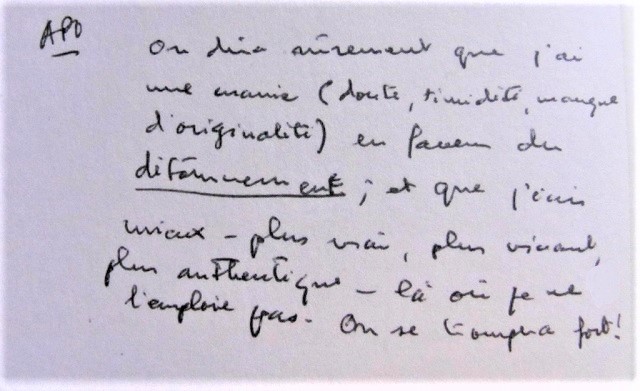 APO
On dira sûrement que j'ai
une manie (doute, timidité, manque
d'originalité) en faveur du
détournement ; et que j'écris
mieux – plus vrai, plus vivant,
plus authentique – là où je ne
l'emploie pas. On se trompera fort!